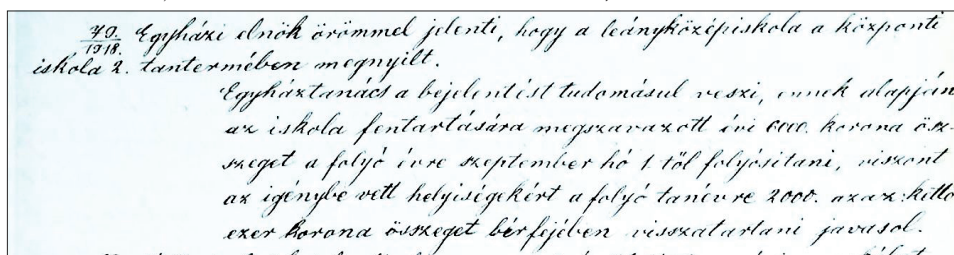 79./1918. Egyházi elnök örömmel jelenti, hogy a leányközépiskola a központi
iskola 2. tantermében megnyilt.
Egyháztanács a bejelentést tudomásul veszi, ennek alapján
az iskola fentartására megszavazott évi 6000. korona ösz-
szeget a folyó évre szeptember hó 1.től folyósitani, viszont
az igénybe vett helyiségekért a folyó tanévre 2000. azaz: kettő
ezer korona összeget bérfejében visszatartani javasol.